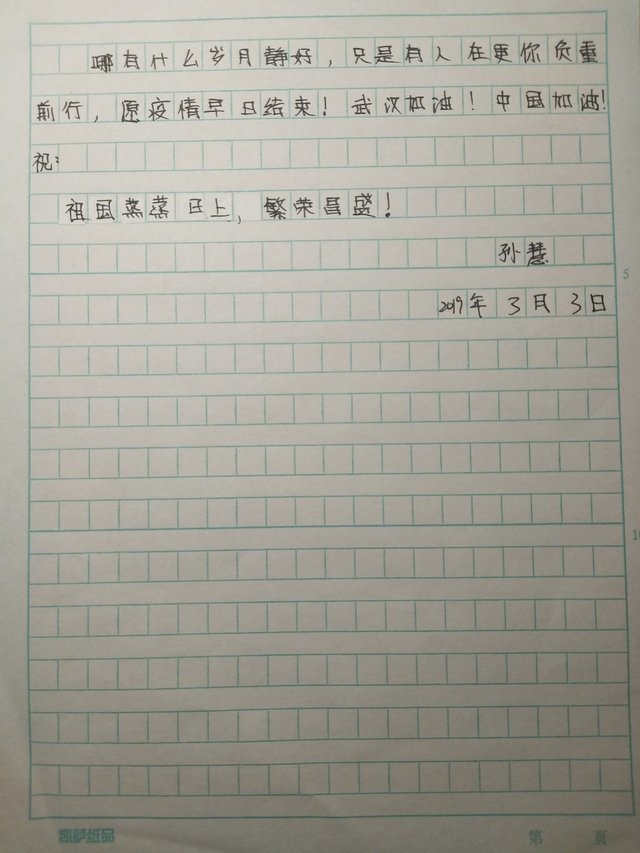 哪有什么岁月静好，只是有人在更你负重
前行，愿疫情早日结束！武汉加油！中国加油！
祝：
祖国蒸蒸日上，繁荣昌盛！
孙慧
5
2019年3月3日
10
凯萨纸品
第 页